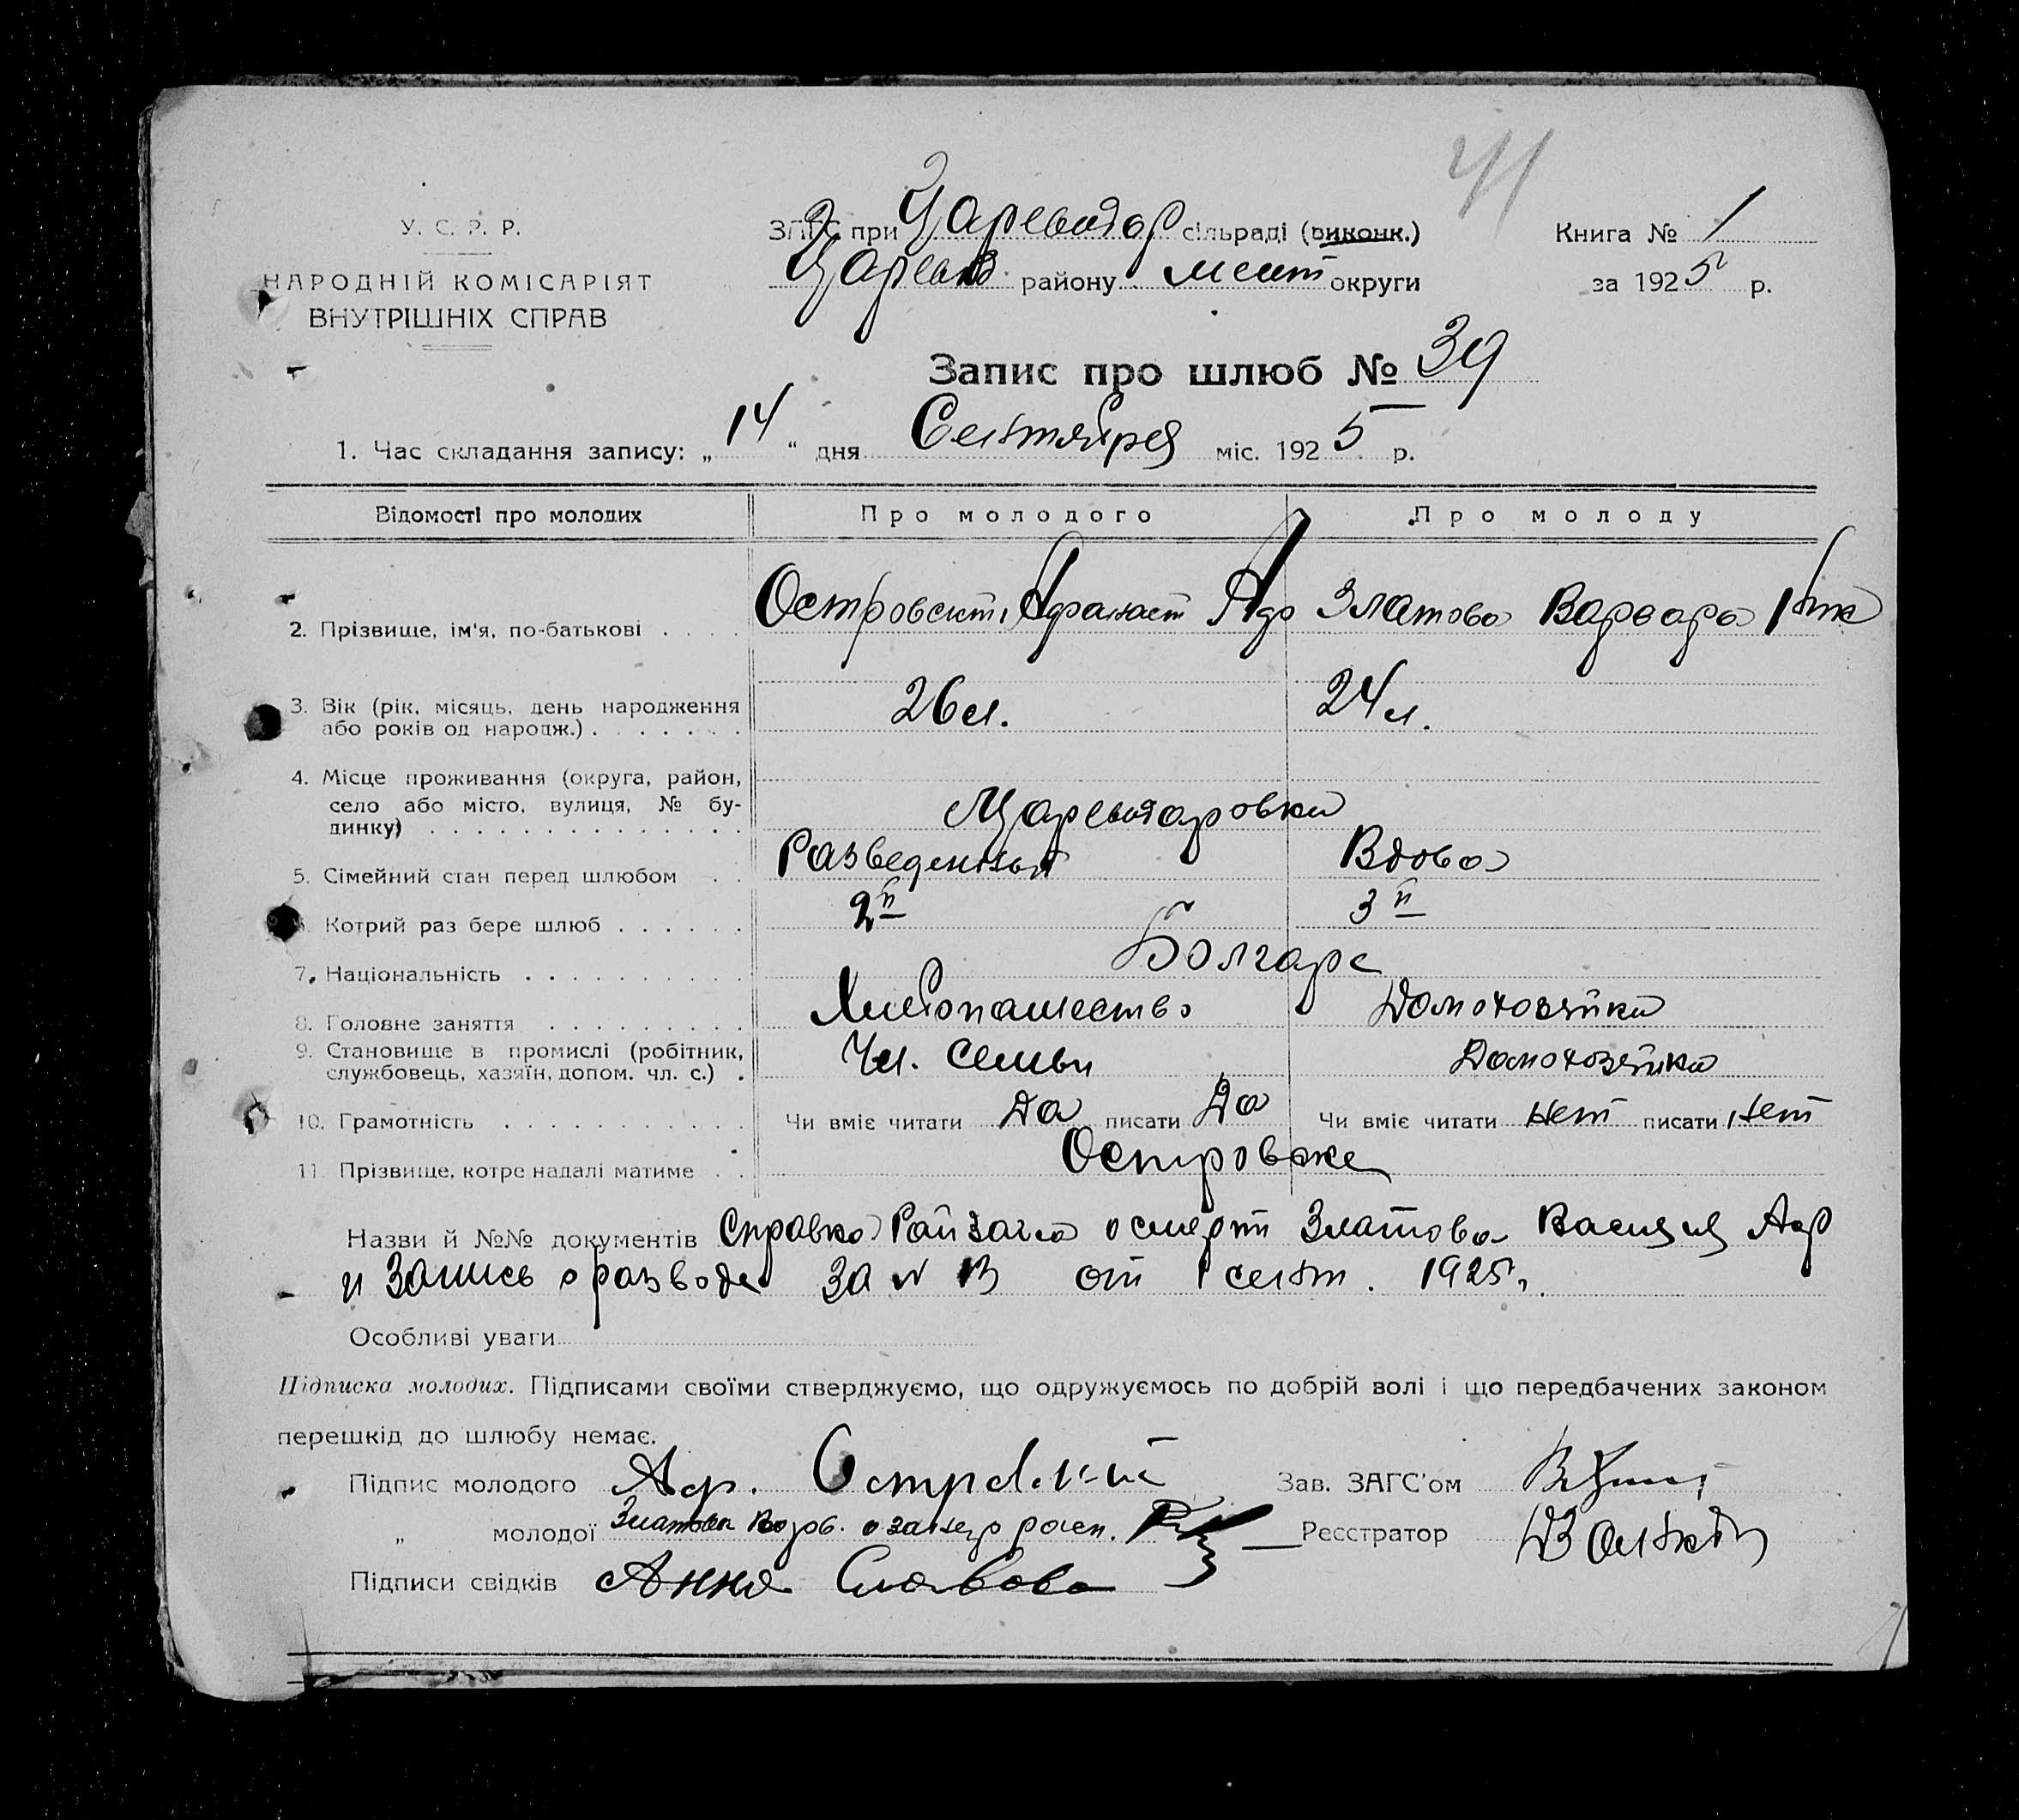 41
У. С. Р. Р.
НАРОДНІЙ КОМІСАРІЯТ
ВНУТРІШНІХ СПРАВ
ЗАГС при Царевдар сільраді (виконк.)
Царевд району Меліт округи
Книга № 1
за 1925 р.
Запис про шлюб № 39
1. Час складання запису: „ 14 “ дня Сентября міс. 1925 р.
Відомості про молодих Про молодого Про молоду
2. Прізвище, ім'я, по-батькові . . . . Островский Афанасий Аф Златова Варвара
3. Вік (рік, місяць, день народження 26 л. 24 л.
або років од народж.) . . . . . . .
4. Місце проживання (округа, район,
село або місто, вулиця, № бу-
динку) . . . . . . . . . . . . . . Царевдаровка
5. Сімейний стан перед шлюбом . . Разведенный Вдова
6. Котрий раз бере шлюб . . . . . . 2й 3й
7. Національність . . . . . . . . . . Болгаре
8. Головне заняття . . . . . . . . . Хлебопашество Домохозяйка
9. Становище в промислі (робітник,
службовець, хазяїн, допом. чл. с.) . Чл. семьи Домохозяйка
10. Грамотність . . . . . . . . . . . Чи вміє читати Да писати Да Чи вміє читати Нет писати Нет
11. Прізвище, котре надалі матиме . . Островские
Назви й №№ документів Справка Райзагса о смерти Златова Василия Аф
и Запись о разводе за № 13 от 1 сент. 1925 г.
Особливі уваги
Підписка молодих. Підписами своїми стверджуємо, що одружуємось по добрій волі і що передбачених законом
перешкід до шлюбу немає.
Підпис молодого Аф. Островский Зав. ЗАГС'ом
„ молодої Златова Варв. а за нее расп. Реєстратор
Підписи свідків Анна Славова